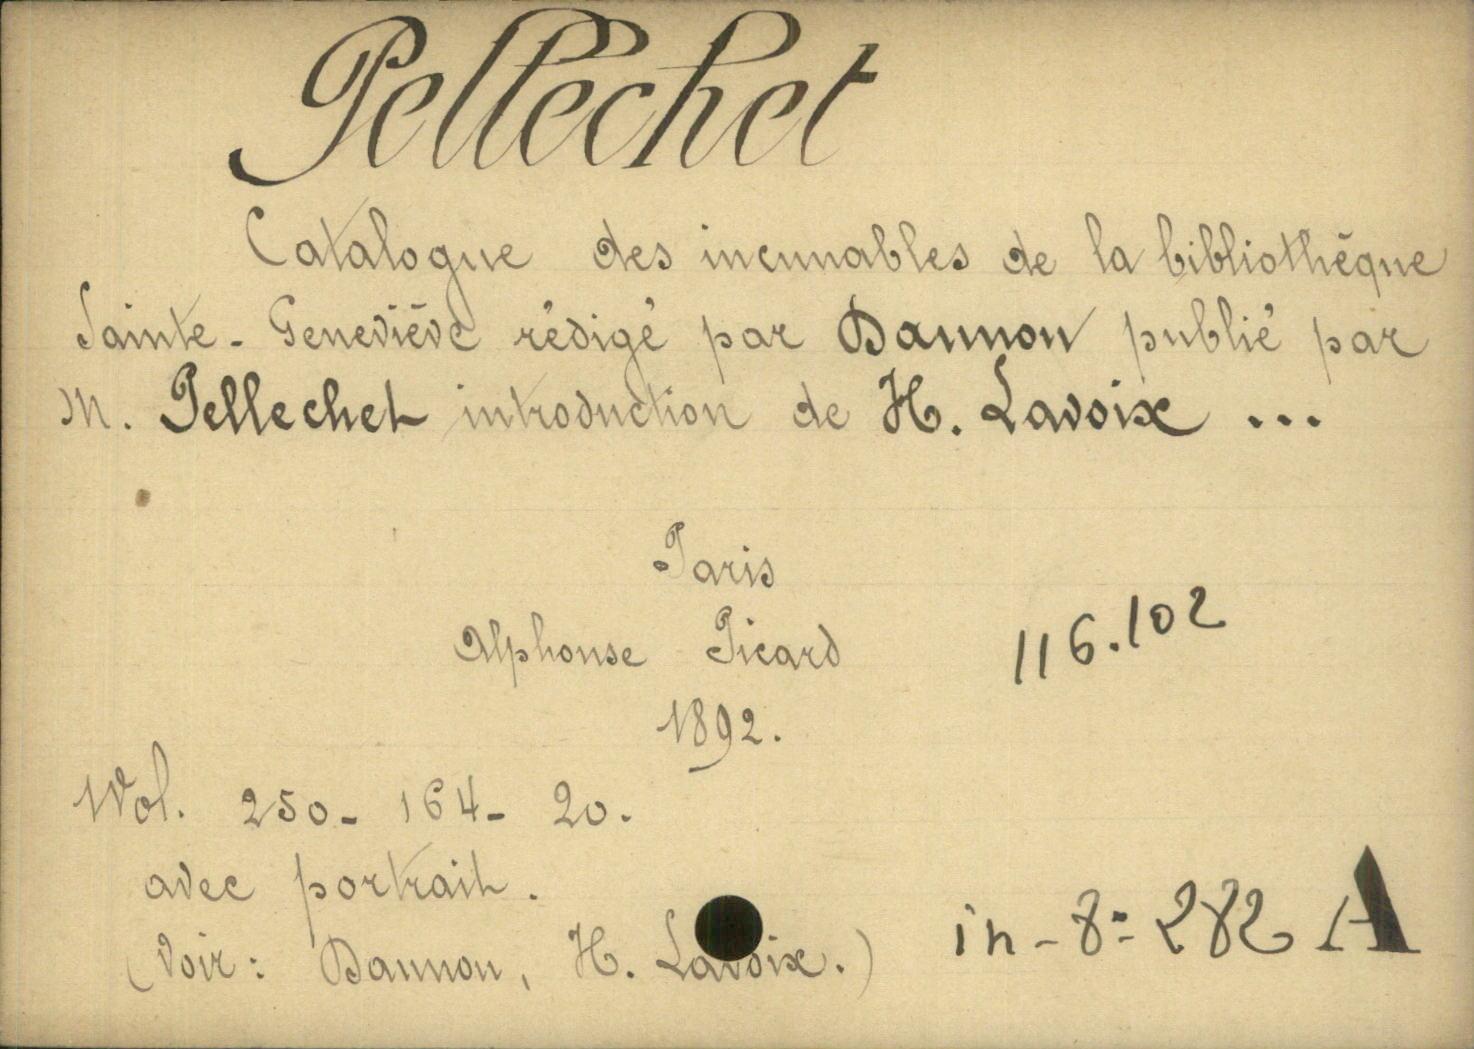 Pellechet
Catalogue des incunables de la bibliothèque
Sainte-Geneviève rédigé par Daunou publié par
M. Pellechet introduction de H. Lavoix ...
Paris
Alphonse Picard
116.102
1892.
1Vol. 250- 164- 20.
avec portrait.
in-8° 282 A
(Voir: Daunou, H. Lavoix.)